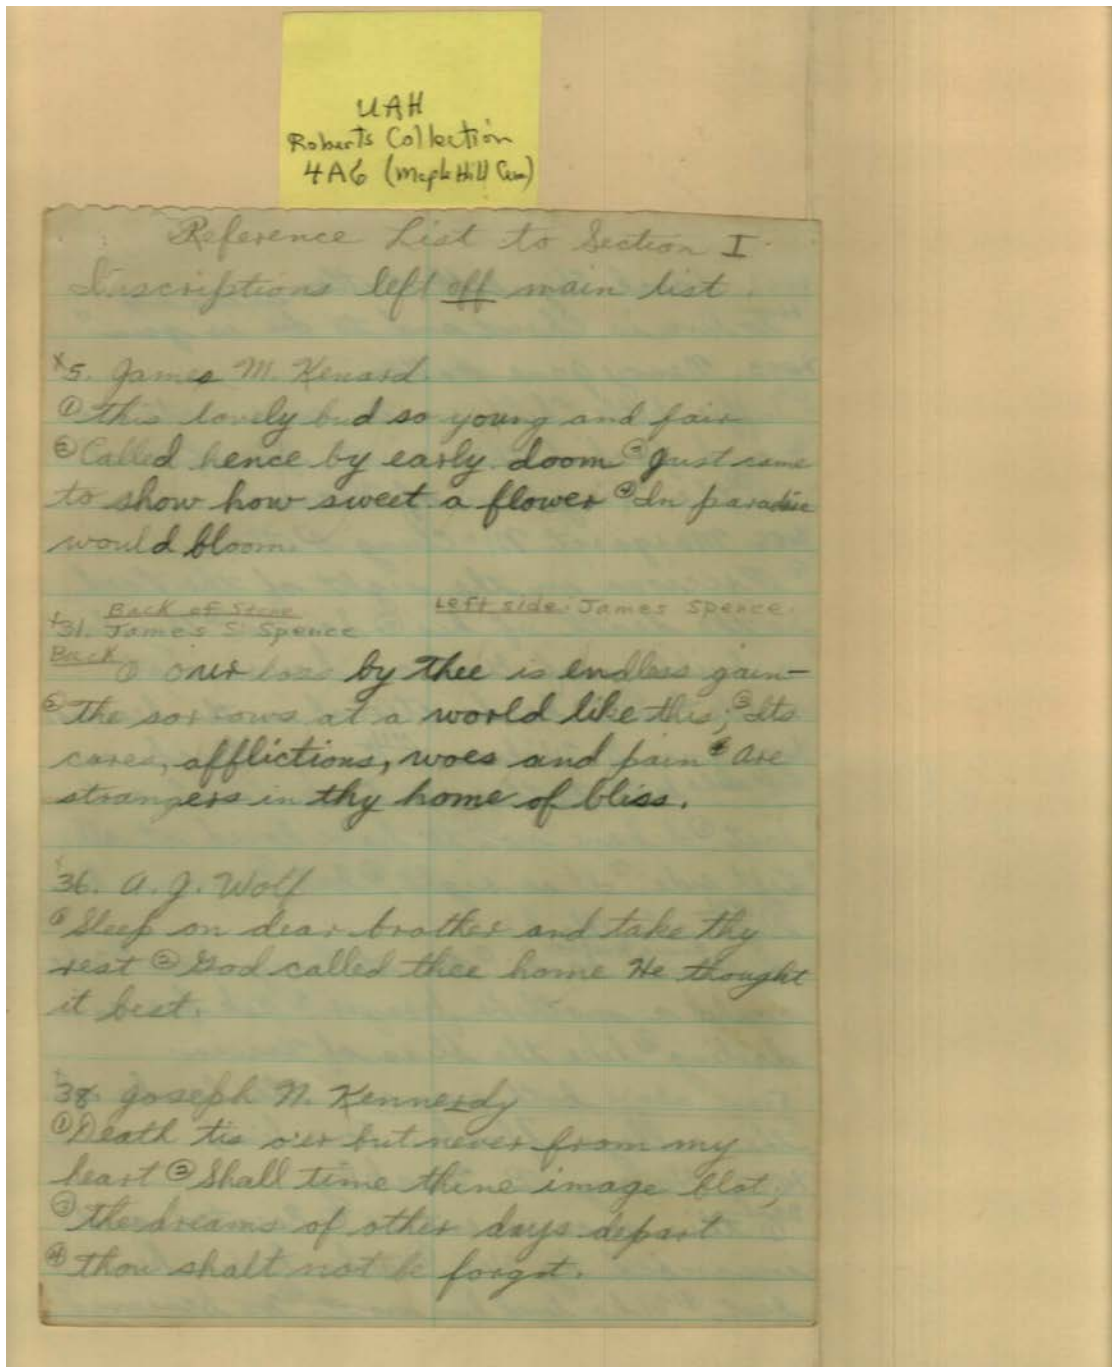 UAH
Roberts Collection
4A6 (Maple Hill Cem)
Reference List to Section I
Inscriptions left off main list.
x5. James M. Kenard.
① This lovely bud so young and fair
② Called hence by early doom ③ Just came
to show how sweet a flower ④ In paradise
would bloom.
Back of Stone Left side: James Spence.
x31. James S. Spence
Back
① our loss by thee is endless gain—
② The sorrows at a world like this; ③ Its
cares, afflictions, woes and pain ④ are
strangers in thy home of bliss.
x36. A. J. Wolf
① Sleep on dear brother and take thy
rest ② God called thee home He thought
it best.
x38. Joseph N. Kennerdy
① Death tis o'er but never from my
heart ② Shall time thine image blot;
③ The dreams of other days depart
④ Thou shalt not be forgot.